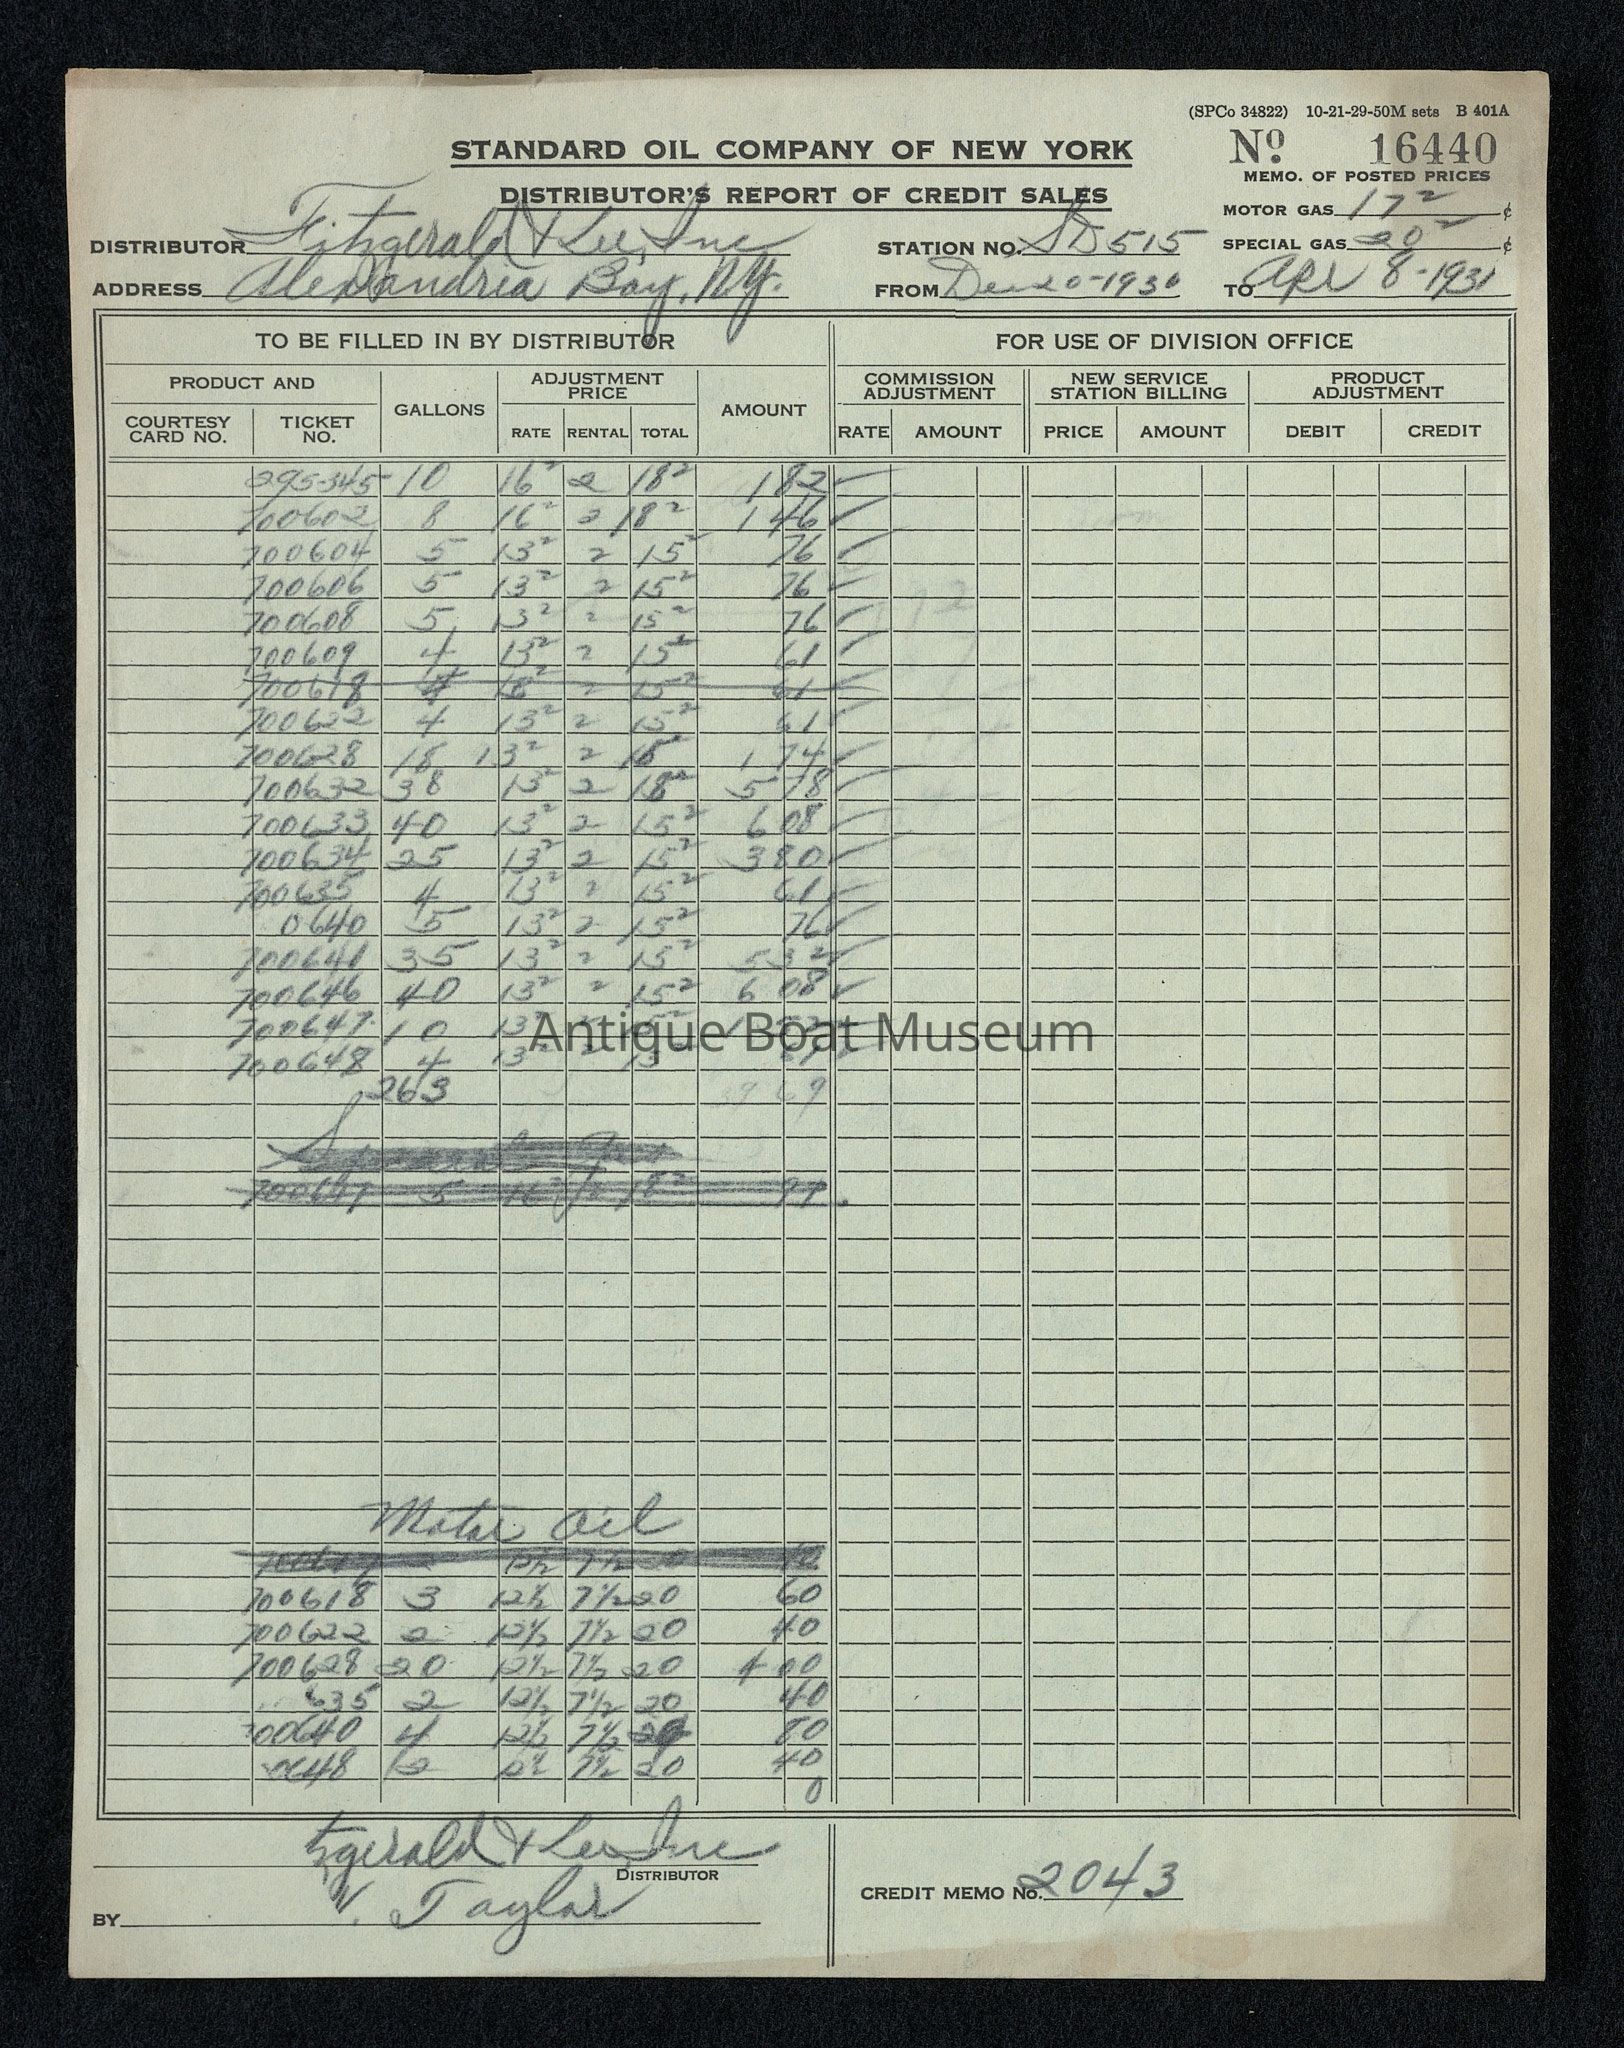 (SPCo 34822) 10-21-29-50M sets B 401A
STANDARD OIL COMPANY OF NEW YORK
No. 16440
DISTRIBUTOR'S REPORT OF CREDIT SALES
MEMO. OF POSTED PRICES
MOTOR GAS 17² ¢
DISTRIBUTOR Fitzgerald & Lee, Inc
STATION NO. SD 515
SPECIAL GAS 20² ¢
ADDRESS Alexandria Bay, N.Y.
FROM Dec 20-1930 TO Apr 8-1931
TO BE FILLED IN BY DISTRIBUTOR
FOR USE OF DIVISION OFFICE
PRODUCT AND
COURTESY CARD NO.
TICKET NO.
GALLONS
ADJUSTMENT PRICE
RATE RENTAL TOTAL
AMOUNT
COMMISSION ADJUSTMENT
RATE AMOUNT
NEW SERVICE STATION BILLING
PRICE AMOUNT
PRODUCT ADJUSTMENT
DEBIT CREDIT
295345 10 16² 2 18² 1 82 ✓
700602 8 16² 2 18² 1 46 ✓
700604 5 13² 2 15² 76 ✓
700606 5 13² 2 15² 76 ✓
700608 5 13² 2 15² 76 ✓
700609 4 13² 2 15² 61 ✓
700618 4 13² 2 15² 61
700622 4 13² 2 15² 61 ✓
700628 18 13² 2 15² 1 74 ✓
700632 38 13² 2 15² 5 78 ✓
700633 40 13² 2 15² 6 08 ✓
700634 25 13² 2 15² 3 80 ✓
700635 4 13² 2 15² 61 ✓
0640 5 13² 2 15² 76 ✓
700641 35 13² 2 15² 5 32 ✓
700646 40 13² 2 15² 6 08 ✓
700647 10 13² 2 15² 1 52 ✓
700648 4 13² 2 15 61 ✓
263 39 69
5 16² 2 18² 91
Motor Oil
12½ 7½
700618 3 12½ 7½ 20 60
700622 2 12½ 7½ 20 40
700628 20 12½ 7½ 20 4 00
635 2 12½ 7½ 20 40
700640 4 12½ 7½ 20 80
0648 2 12½ 7½ 20 40
0
Antique Boat Museum
tzgerald & Lee, Inc
DISTRIBUTOR
BY V. Taylor
CREDIT MEMO No. 2043